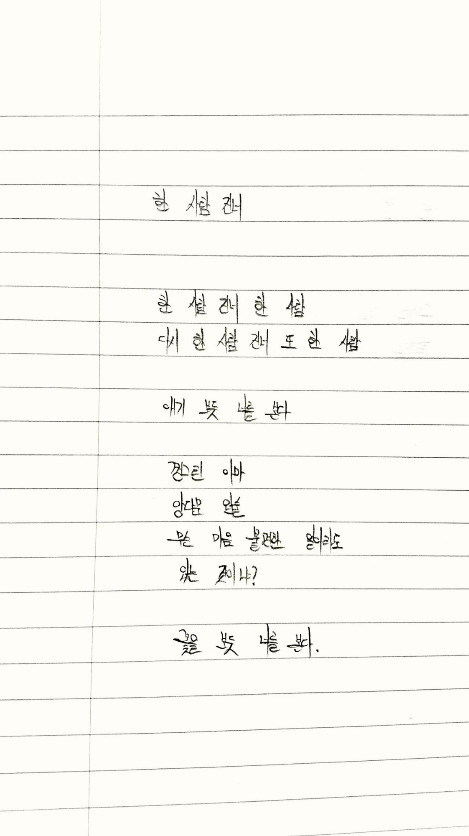 한 사람 건너
한 사람 건너 한 사람
다시 한 사람 건너 또 한 사람
애기 보듯 너를 본다
찡그린 이마
앙다문 입술
무슨 마음 불편한 일이라도
있는 것이냐?
꽃을 보듯 너를 본다.